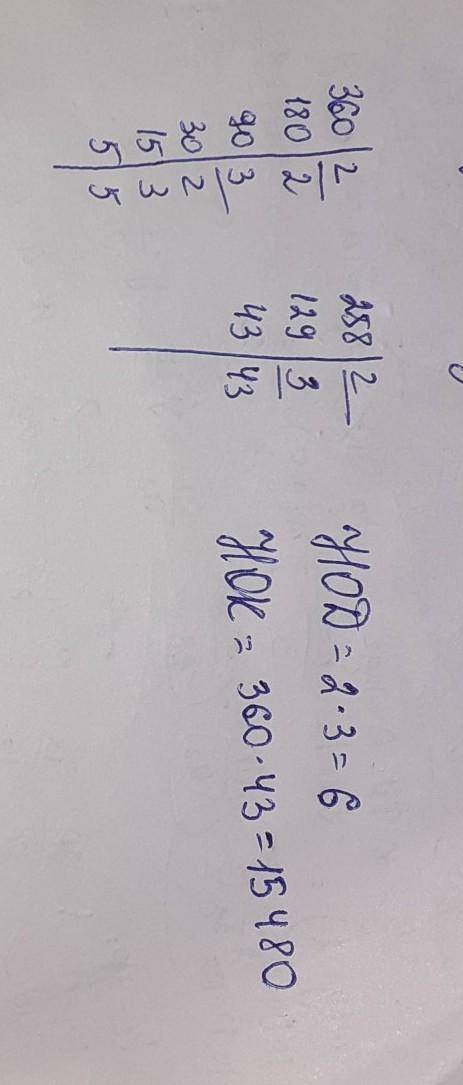 360 | 2
180 | 2
90 | 3
30 | 2
15 | 3
5 | 5
258 | 2
129 | 3
43 | 43
НОД = 2 · 3 = 6
НОК = 360 · 43 = 15480